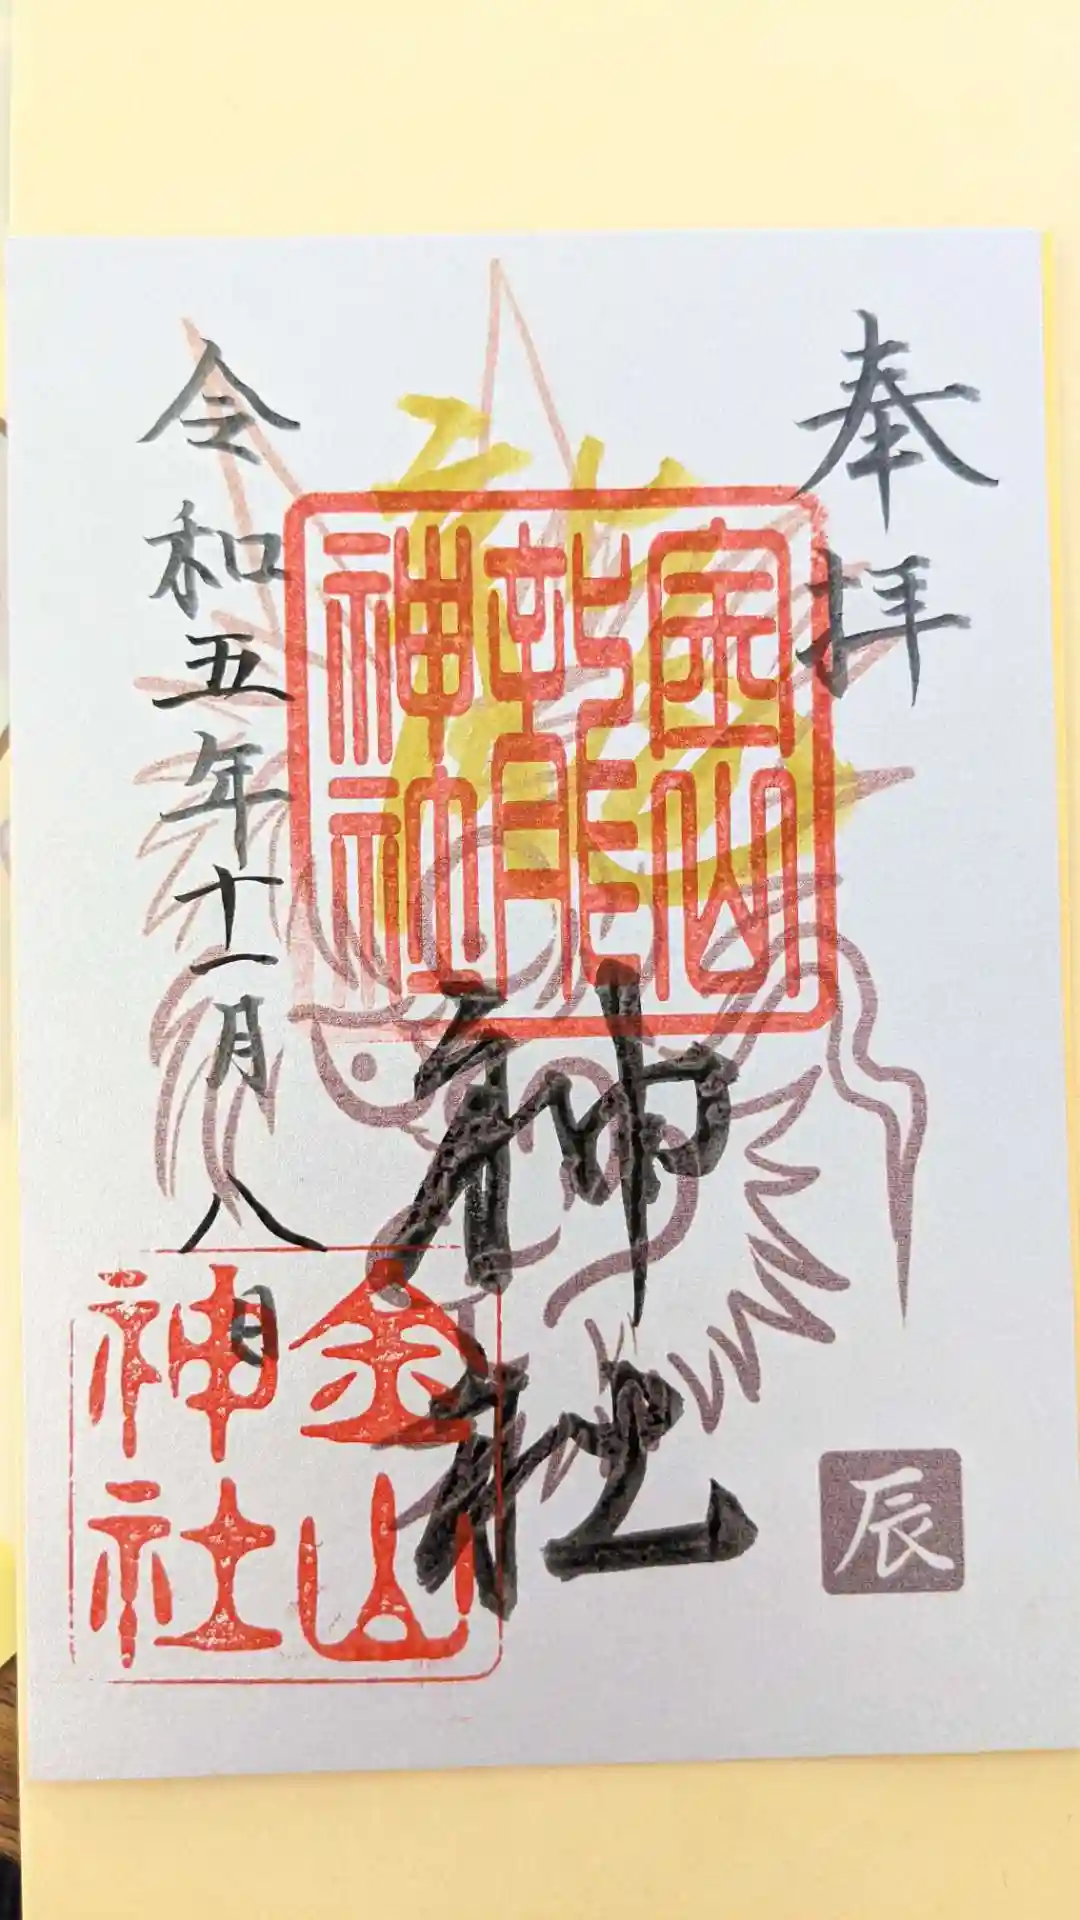 奉拝
金山龍神社
神社
辰
令和五年十一月八日
金山神社